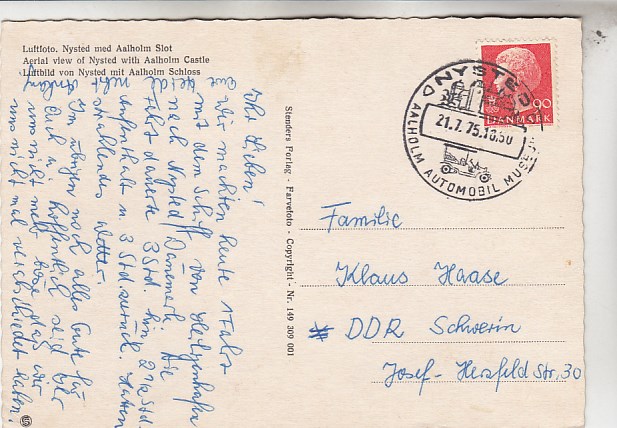 Luftfoto. Nysted med Aalholm Slot
Aerial view of Nysted with Aalholm Castle
Luftbild von Nysted mit Aalholm Schloss
Ihr Lieben!
Wir machten heute 1 Fahrt
mit dem Schiff von Heiligenhafen
nach Nysted/Dänemark. Die
Fahrt dauerte 3 Std. hin 2½ Std.
Aufenthalt u. 3 Std. zurück. Hatten
strahlendes Wetter.
Im übrigen noch alles Gute für
Euch u. hoffentlich seid Ihr
uns nicht mehr böse, daß wir
uns nicht mal verabschiedet haben!
Stenders Forlag - Farvefoto - Copyright - Nr. 149 309 001
NYSTED
21.7.75.10.50
AALHOLM AUTOMOBIL MUSEUM
90
DANMARK
Familie
Klaus Haase
* DDR Schwerin
Josef-Herzfeld Str. 30